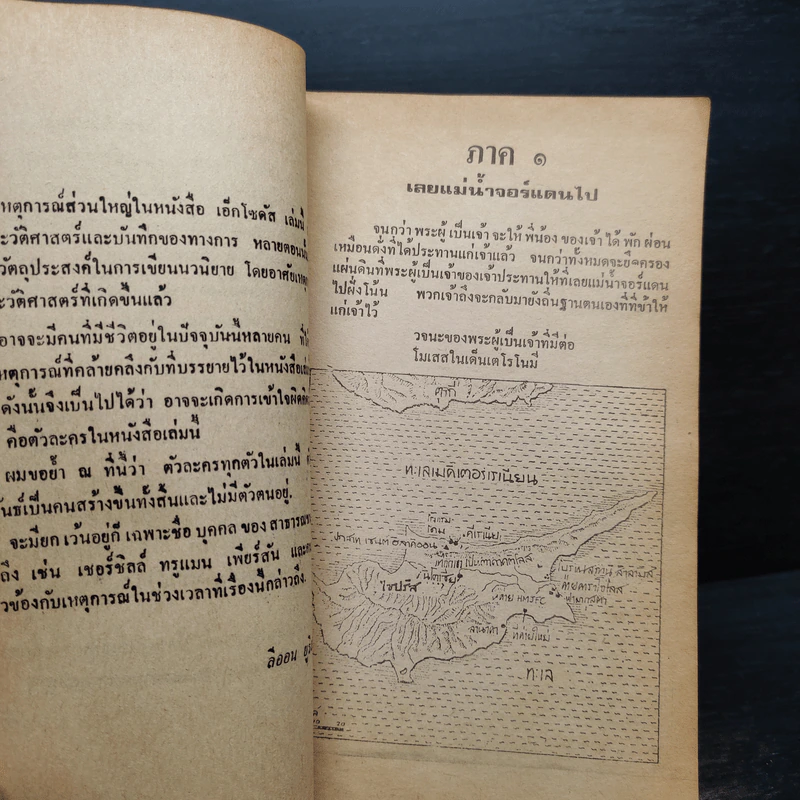 หตุการณ์ส่วนใหญ่ในหนังสือ เอ็กโซดัส เล่มนี้
ะวัติศาสตร์และบันทึกของทางการ หลายตอน
วัตถุประสงค์ในการเขียนนวนิยาย โดยอาศัยเหตุ
ะวัติศาสตร์ที่เกิดขึ้นแล้ว
อาจจะมีคนที่มีชีวิตอยู่ในปัจจุบันนี้หลายคน ที่
หตุการณ์ที่คล้ายคลึงกับที่บรรยายไว้ในหนังสือเล่ม
ดังนั้นจึงเป็นไปได้ว่า อาจจะเกิดการเข้าใจผิด
คือตัวละครในหนังสือเล่มนี้
ผมขอย้ำ ณ ที่นี้ว่า ตัวละครทุกตัวในเล่มนี้
ันธ์เป็นคนสร้างขึ้นทั้งสิ้นและไม่มีตัวตนอยู่.
จะมียก เว้นอยู่ก็ เฉพาะชื่อ บุคคล ของ สาธารณ
ถึง เช่น เชอร์ชิลล์ ทรูแมน เพียร์สัน และ
วข้องกับเหตุการณ์ในช่วงเวลาที่เรื่องนี้กล่าวถึง.
ลีออน ยู
ภาค ๑
เลยแม่น้ำจอร์แดนไป
จนกว่า พระผู้ เป็นเจ้า จะให้ พี่น้อง ของเจ้า ได้ พัก ผ่อน
เหมือนดั่งที่ได้ประทานแก่เจ้าแล้ว จนกว่าทั้งหมดจะยึดครอง
แผ่นดินที่พระผู้เป็นเจ้าของเจ้าประทานให้ที่เลยแม่น้ำจอร์แดน
ไปฝั่งโน้น พวกเจ้าถึงจะกลับมายังถิ่นฐานตนเองที่ที่ข้าให้
แก่เจ้าไว้
วจนะของพระผู้เป็นเจ้าที่มีต่อ
โมเสสในเด็นเตโรโนมี่
ตุรกี
ทะเลเมดิเตอร์เรเนียน
โรงแรม
โดม
คีเรเนีย
ปาสาท เซนต์ ฮิลาเรออน
ไซปรัส
นิโคเซีย
ฟามากุสตา
ค่าย HMJFC
ลานาคา
ที่ค่ายใหม่
ทะเล
20